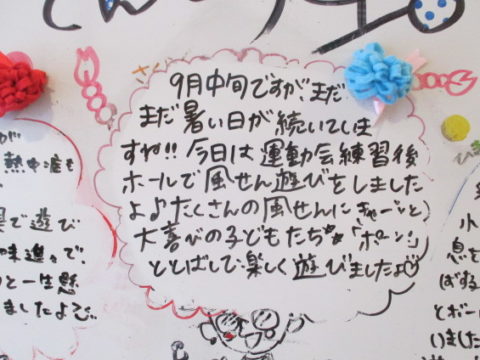 さく
9月中旬ですが、まだ
まだ暑い日が続いてしま
すね!!今日は運動会練習後
ホールで風せん遊びをしました
よ♪♪たくさんの風せんにキャーッと
大喜びの子どもたち「ポーン!」
ととばして楽しく遊びましたよ♡
が
熱中症も
で遊び
味進々で、
と一生懸
ましたよ
小
息を
ばする
とボー
いました